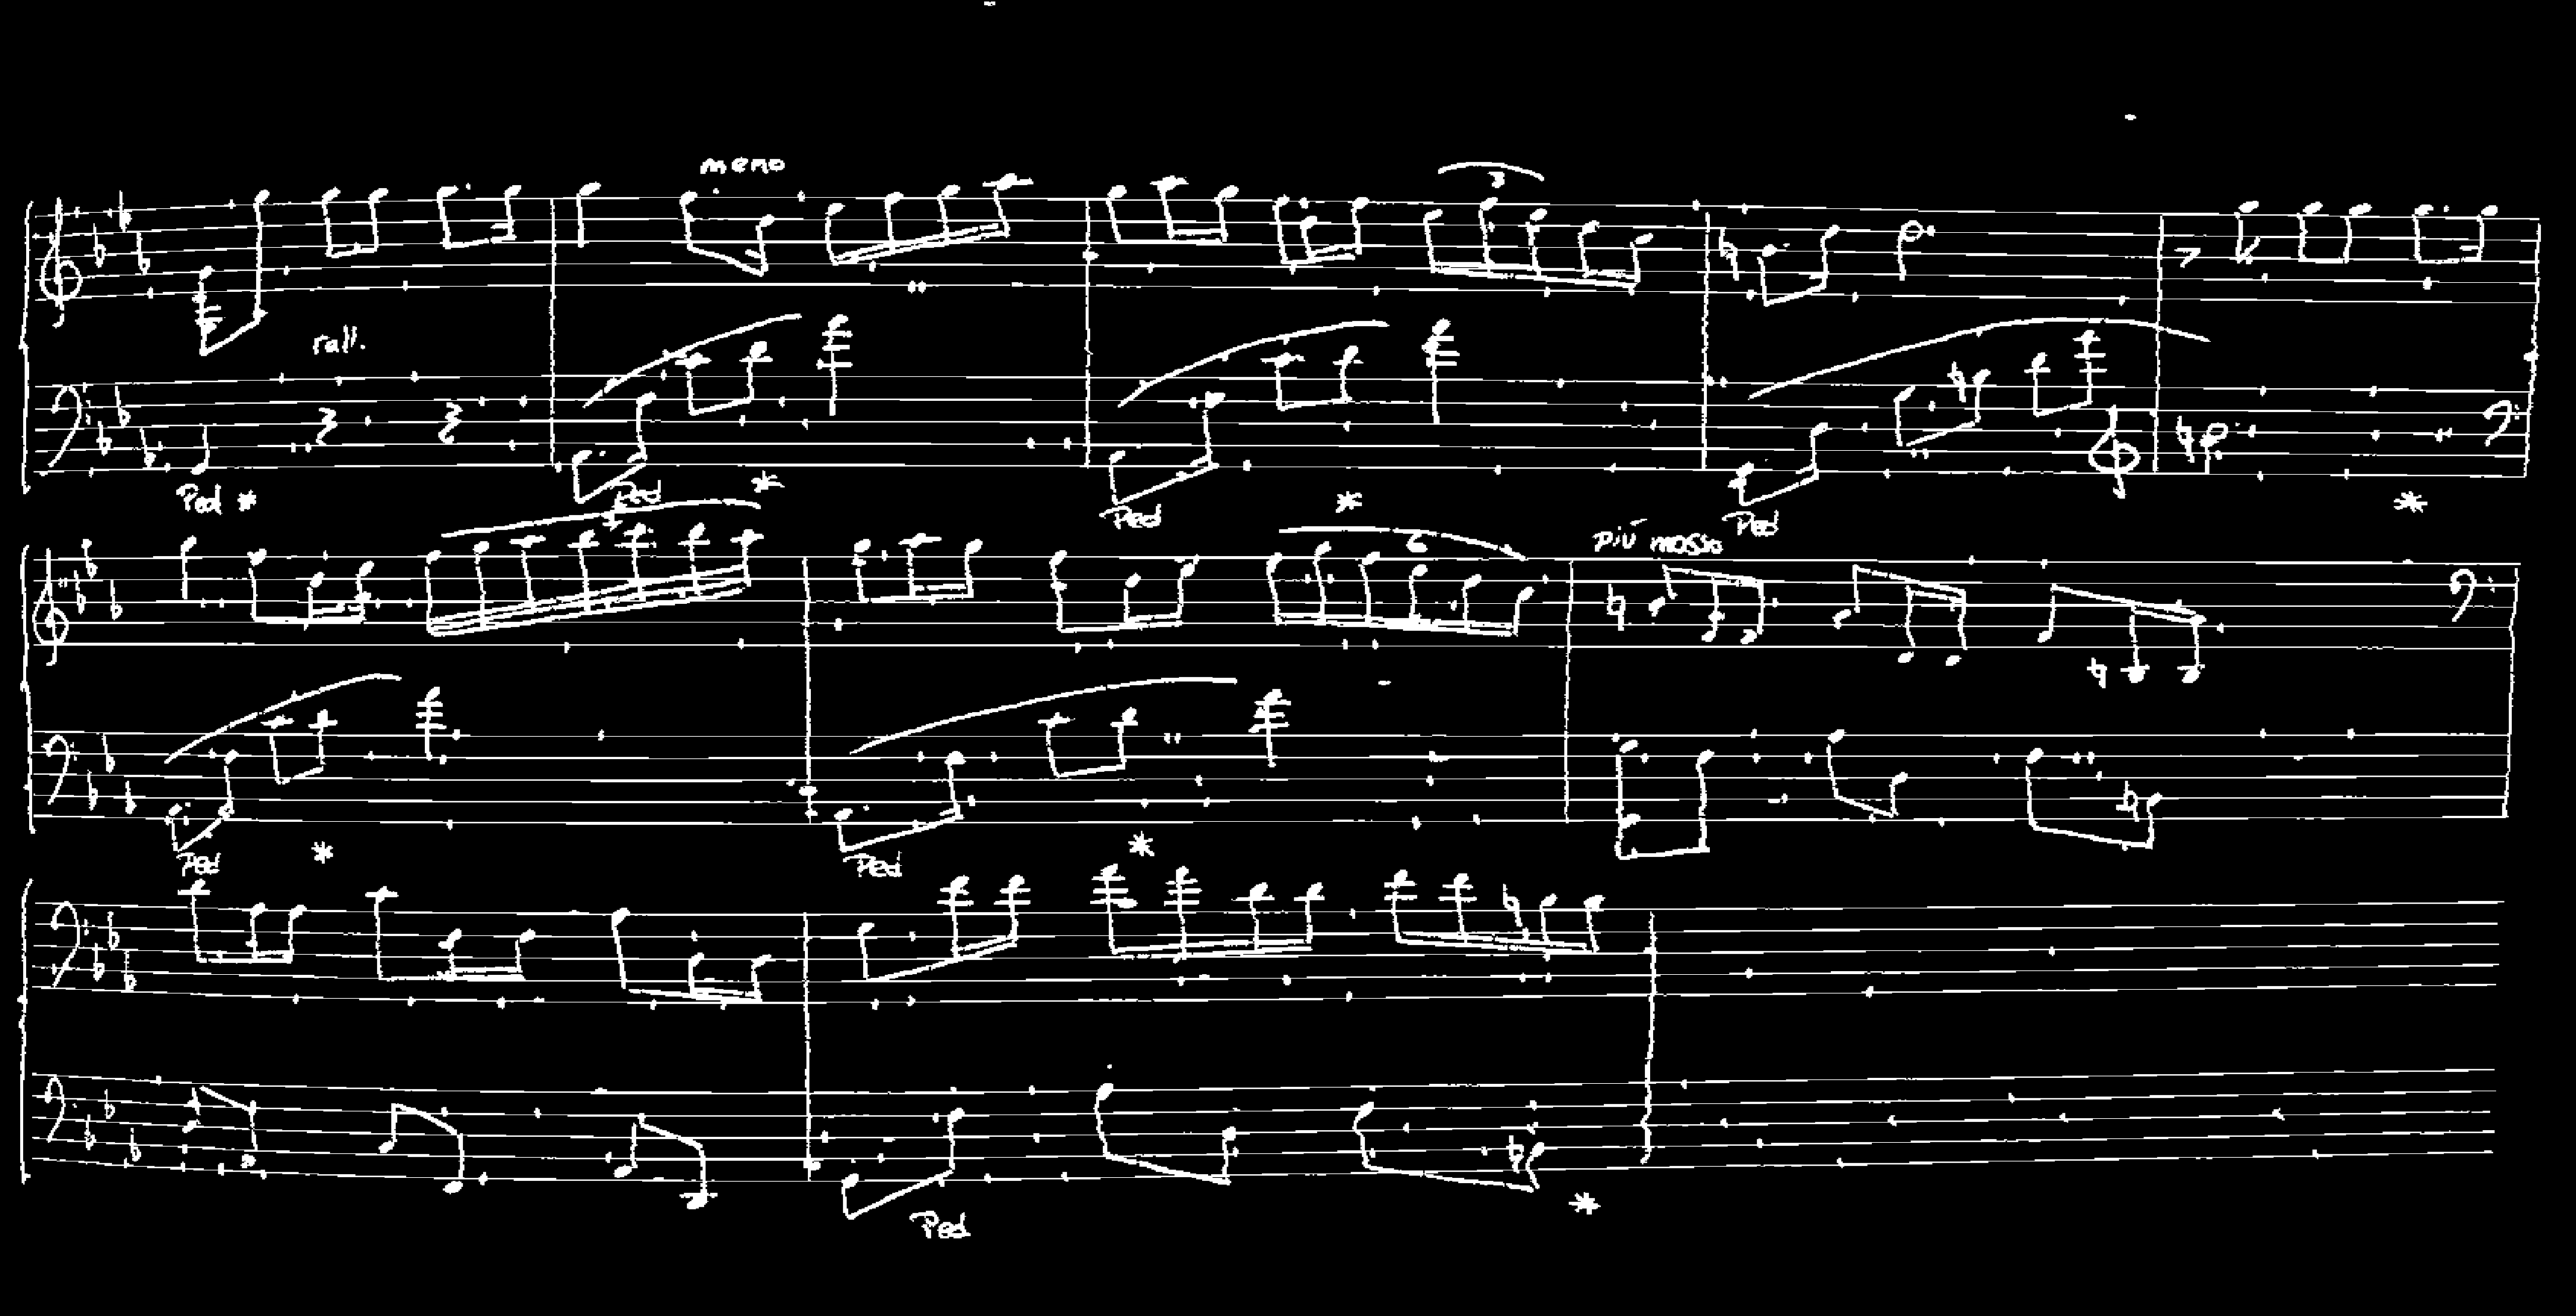 meno
3
rall.
Ped * Ped * Ped * Ped *
più mosso
6
Ped * Ped *
Ped *